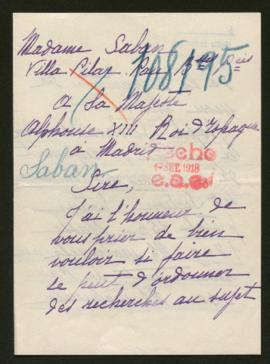 Madame Saban
Villa Pilar, Pau, Bses Pées
108195
A Sa Majesté
Alphonse XIII Roi d'Espagne
à Madrid
hecho
1 SEP. 1918
Saban
Sire,
J'ai l'honneur de
vous prier de bien
vouloir si faire
se peut d'ordonner
des recherches au sujet